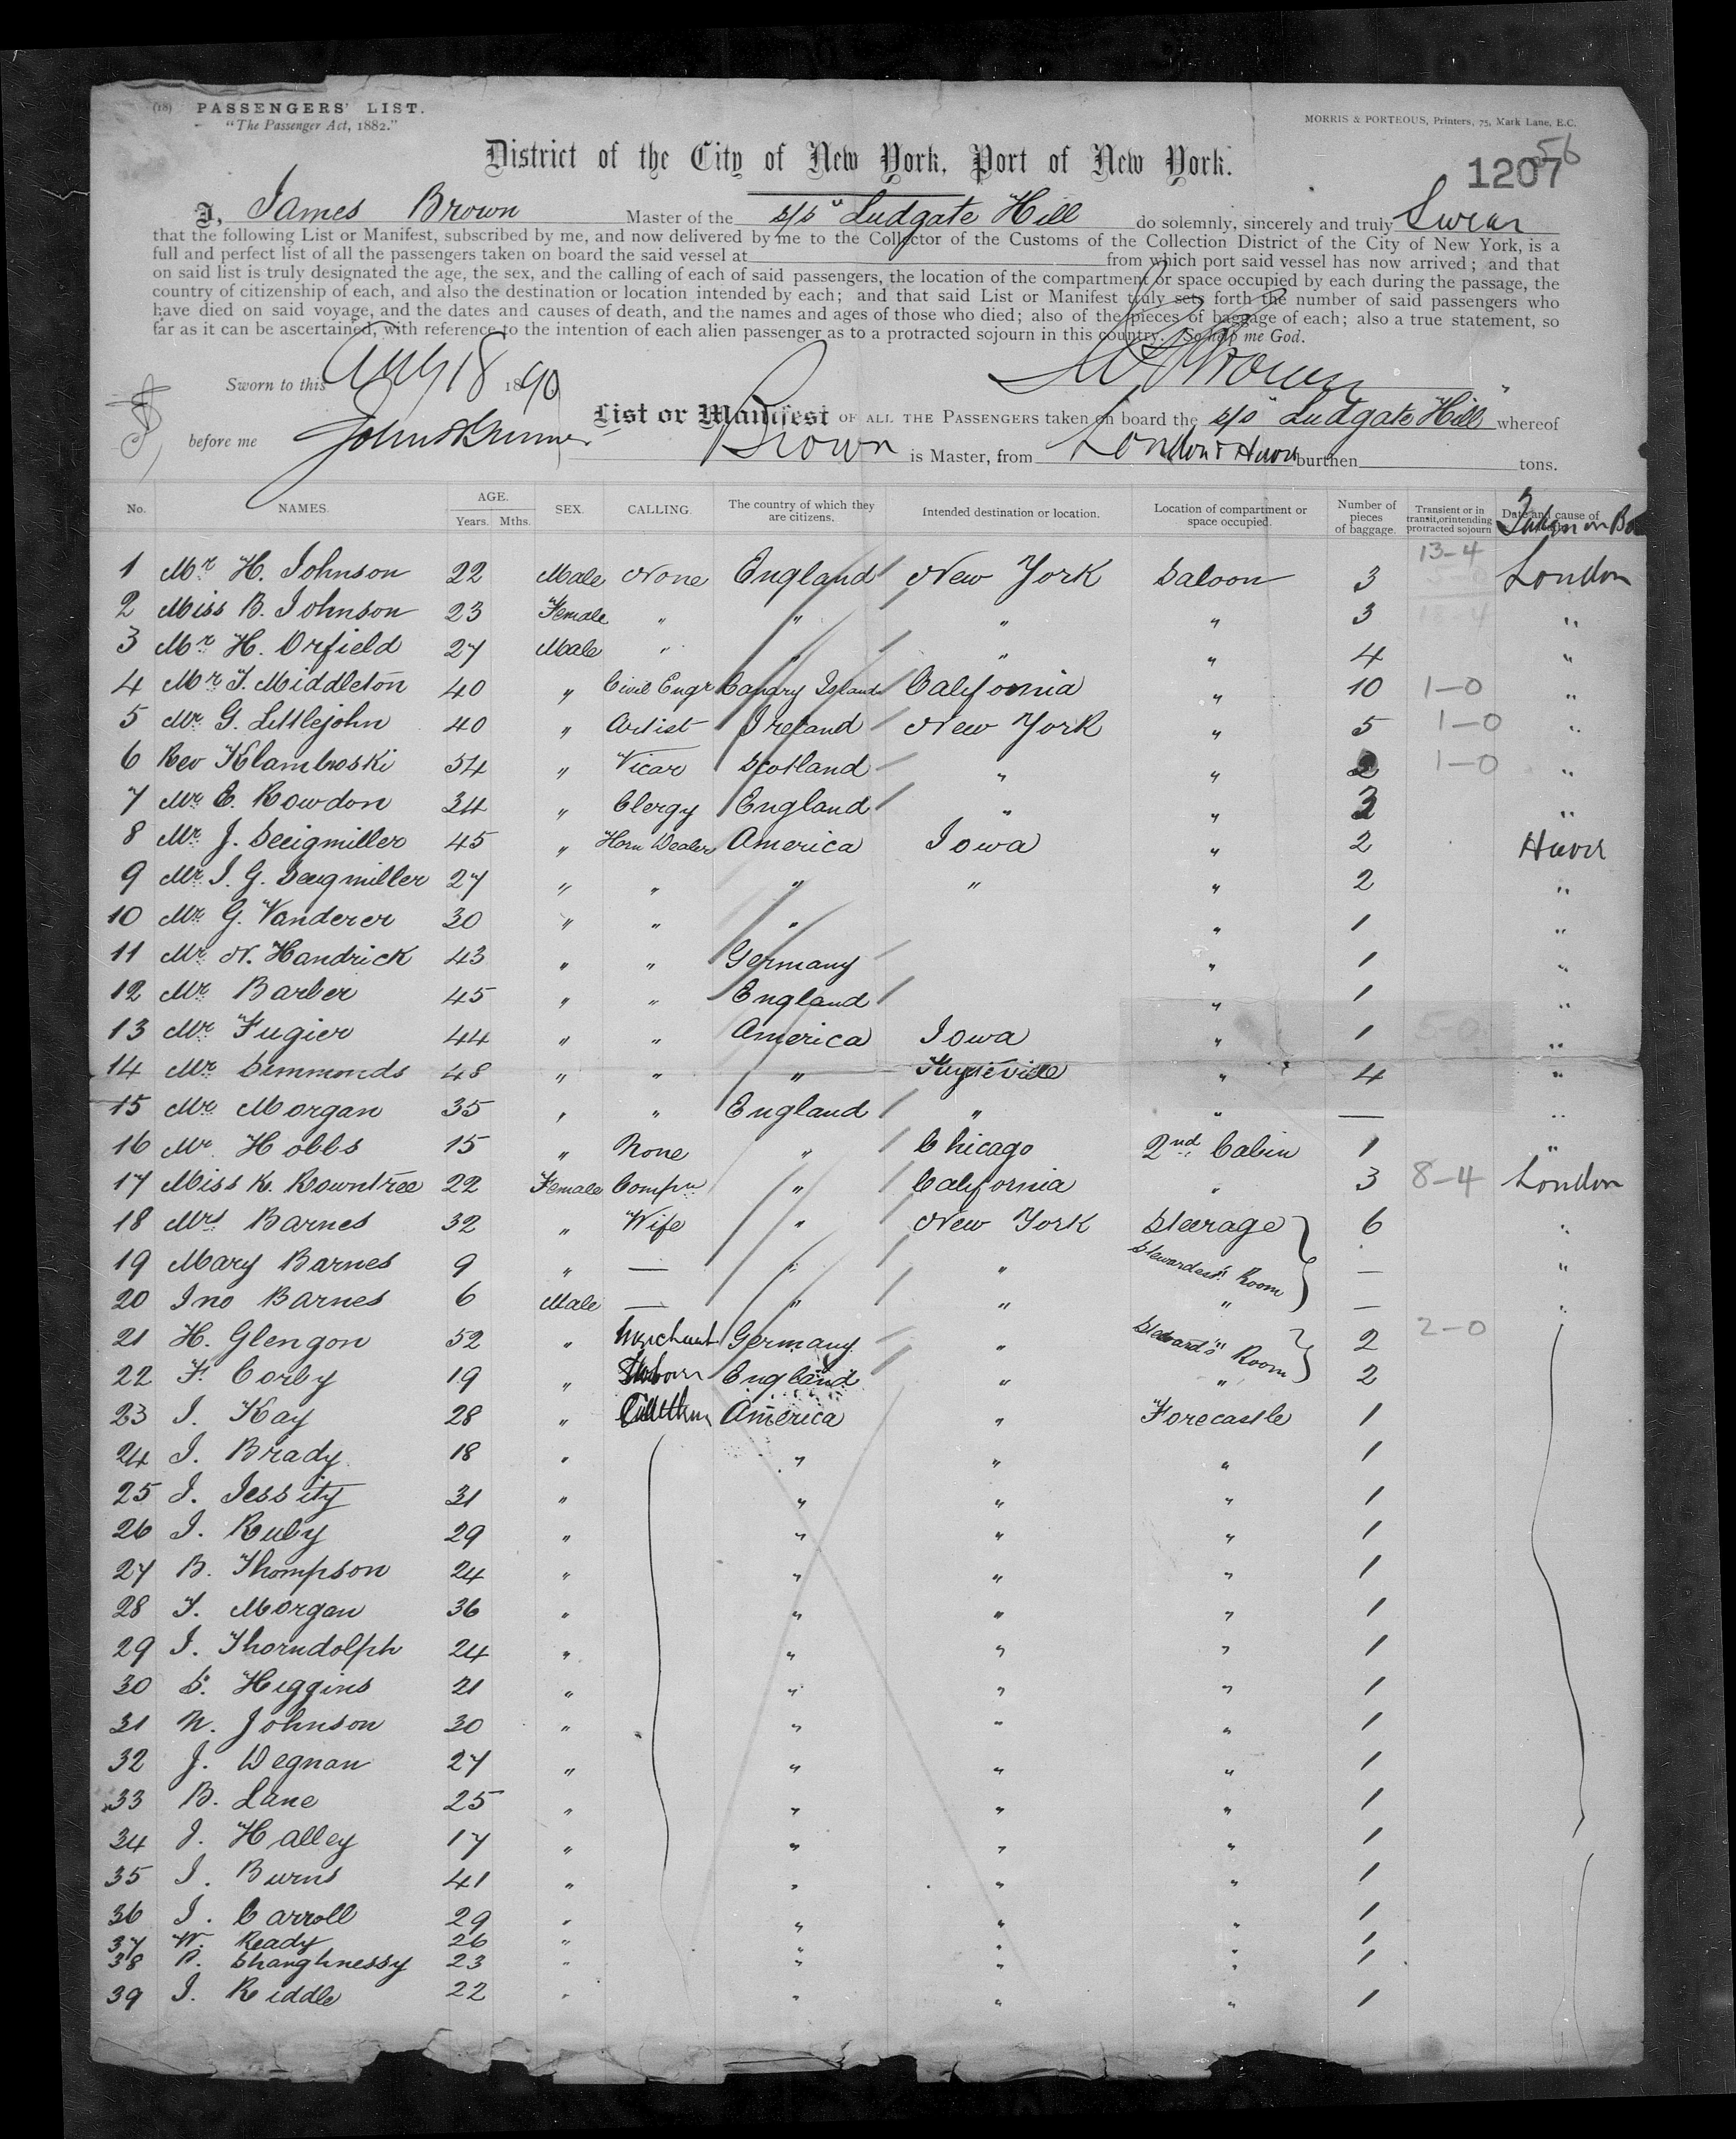 (18) PASSENGERS' LIST.
"The Passenger Act, 1882."
MORRIS & PORTEOUS, Printers, 75, Mark Lane, E.C.
District of the City of New York, Port of New York.
1207 56
I, James Brown Master of the s/s "Ludgate Hill do solemnly, sincerely and truly Swear
that the following List or Manifest, subscribed by me, and now delivered by me to the Collector of the Customs of the Collection District of the City of New York, is a
full and perfect list of all the passengers taken on board the said vessel at from which port said vessel has now arrived; and that
on said list is truly designated the age, the sex, and the calling of each of said passengers, the location of the compartment or space occupied by each during the passage, the
country of citizenship of each, and also the destination or location intended by each; and that said List or Manifest truly sets forth the number of said passengers who
have died on said voyage, and the dates and causes of death, and the names and ages of those who died; also of the pieces of baggage of each; also a true statement, so
far as it can be ascertained, with reference to the intention of each alien passenger as to a protracted sojourn in this country. So help me God.
Sworn to this Aug 18 1890
Brown
List or Manifest OF ALL THE PASSENGERS taken on board the s/s "Ludgate Hill" whereof
before me Brown is Master, from London & Havre burthen tons.
No. NAMES. AGE. Years. Mths. SEX. CALLING. The country of which they are citizens. Intended destination or location. Location of compartment or space occupied. Number of pieces of baggage. Transient or in transit, or intending protracted sojourn Date and cause of
Taken on Bo
13-4
1 Mr H. Johnson 22 Male None England New York Saloon 3 London
2 Miss B. Johnson 23 Female " " " " 3 "
3 Mr H. Orfield 27 Male " " " " 4 "
4 Mr T. Middleton 40 " Civil Engr Canary Islands California " 10 1-0 "
5 Mr G. Littlejohn 40 " Artist Ireland New York " 5 1-0 "
6 Rev Klambroski 54 " Vicar Scotland " " 2 1-0 "
7 Mr E. Rowdon 34 " Clergy England " " 3 "
8 Mr J. Seeigmiller 45 " Horn Dealer America Iowa " 2 Havre
9 Mr J. G. Seeigmiller 27 " " " " " 2 "
10 Mr G. Vanderer 30 " " " " 1 "
11 Mr N. Handrick 43 " " Germany " 1 "
12 Mr Barber 45 " " England " 1 "
13 Mr Fugier 44 " " America Iowa " 1 "
14 Mr Simmonds 48 " " " " 4 "
15 Mr Morgan 35 " " England " " — "
16 Mr Hobbs 15 " None " Chicago 2nd Cabin 1 "
17 Miss K. Rowntree 22 Female Compn " California " 3 8-4 London
18 Mrs Barnes 32 " Wife " New York Steerage 6 "
19 Mary Barnes 9 " — " " Stewardess' Room — "
20 Jno Barnes 6 Male — " " " — "
21 H. Glengon 52 " Merchant Germany " Steward's Room 2 2-0
22 F. Corby 19 " England " " 2
23 J. Kay 28 " Cattleman America " Forecastle 1
24 J. Brady 18 " " " " 1
25 J. Jessity 31 " " " " 1
26 J. Ruby 29 " " " " 1
27 B. Thompson 24 " " " " 1
28 T. Morgan 36 " " " " 1
29 J. Thorndolph 24 " " " " 1
30 S. Higgins 21 " " " " 1
31 N. Johnson 30 " " " " 1
32 J. Degnan 27 " " " " 1
33 B. Lane 25 " " " " 1
34 J. Halley 17 " " " " 1
35 J. Burns 41 " " " " 1
36 J. Carroll 29 " " " " 1
37 W. Ready 26 " " " " 1
38 P. Shaughnessy 23 " " " " 1
39 J. Riddle 22 " " " " 1